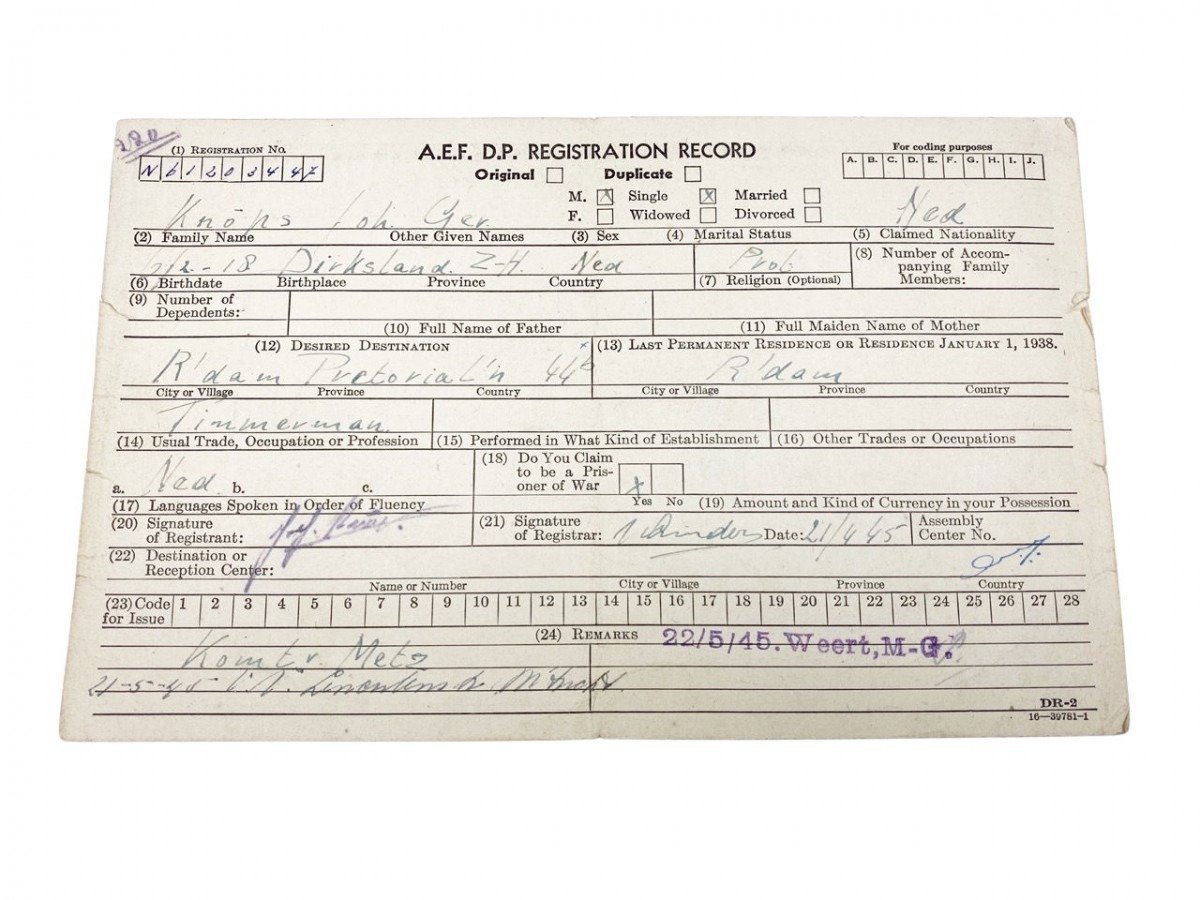 220
(1) REGISTRATION No.
A.E.F. D.P. REGISTRATION RECORD
For coding purposes
Original Duplicate
A. B. C. D. E. F. G. H. I. J.
N 6 1 2 0 3 4 4 7
M. X Single X Married
F. Widowed Divorced
Knöps Joh. Ger. Ned
(2) Family Name Other Given Names (3) Sex (4) Marital Status (5) Claimned Nationality
-18 Dirksland. Z-H. Ned Prot.
(8) Number of Accom-
panying Family
Members:
(6) Birthdate Birthplace Province Country (7) Religion (Optional)
(9) Number of
Dependents:
(10) Full Name of Father (11) Full Maiden Name of Mother
(12) DESIRED DESTINATION (13) LAST PERMANENT RESIDENCE OR RESIDENCE JANUARY 1, 1938.
R'dam Pretorial'n 44b R'dam
City or Village Province Country City or Village Province Country
Timmerman.
(14) Usual Trade, Occupation or Profession (15) Performed in What Kind of Establishment (16) Other Trades or Occupations
a. Ned. b. c.
(18) Do You Claim
to be a Pris-
oner of War X
Yes No
(17) Languages Spoken in Order of Fluency (19) Amount and Kind of Currency in your Possession
(20) Signature
of Registrant:
(21) Signature
of Registrar: Date: 21/4 45
Assembly
Center No.
(22) Destination or
Reception Center:
Name or Number City or Village Province Country
(23) Code
for Issue
1 2 3 4 5 6 7 8 9 10 11 12 13 14 15 16 17 18 19 20 21 22 23 24 25 26 27 28
(24) REMARKS 22/5/45. Weert, M-G.
Komt v. Metz
21-5-45
DR-2
16—39781-1